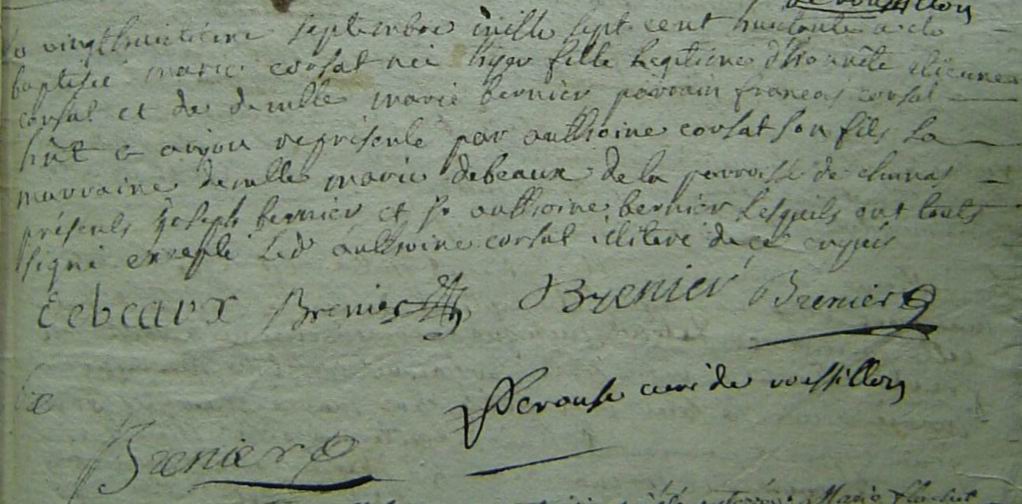 de roussillon
le vingthuitieme septembre mille sept cent huitante a eté
baptisée marie corsat née hyer fille legitime d'honnete etienne
corsat et de demlle marie bernier parrain francois corsat
representé par anthoine corsat son fils la
marraine demlle marie debeaux de la parroisse de
présents joseph bernier et sr anthoine bernier lesquels ont touts
signé excepté led anthoine corsat illiteré de ce enquis
debeaux Brenier Brenier Brenier
Perouse curé de roussillon
Brenier
Marie